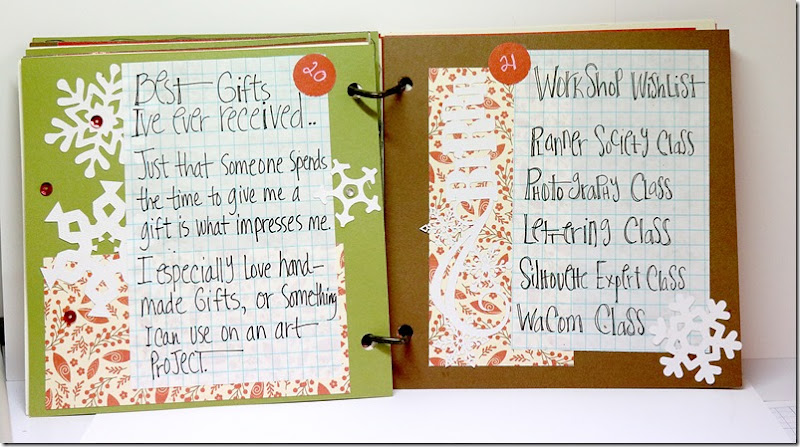 20
Best Gifts
I've ever received..
Just that someone spends
the time to give me a
gift is what impresses me.
I especially love hand-
made Gifts, or something
I can use on an art
project.
21
Workshop Wishlist
Planner Society Class
Photography Class
Lettering Class
Silhouette Expert Class
Wacom Class